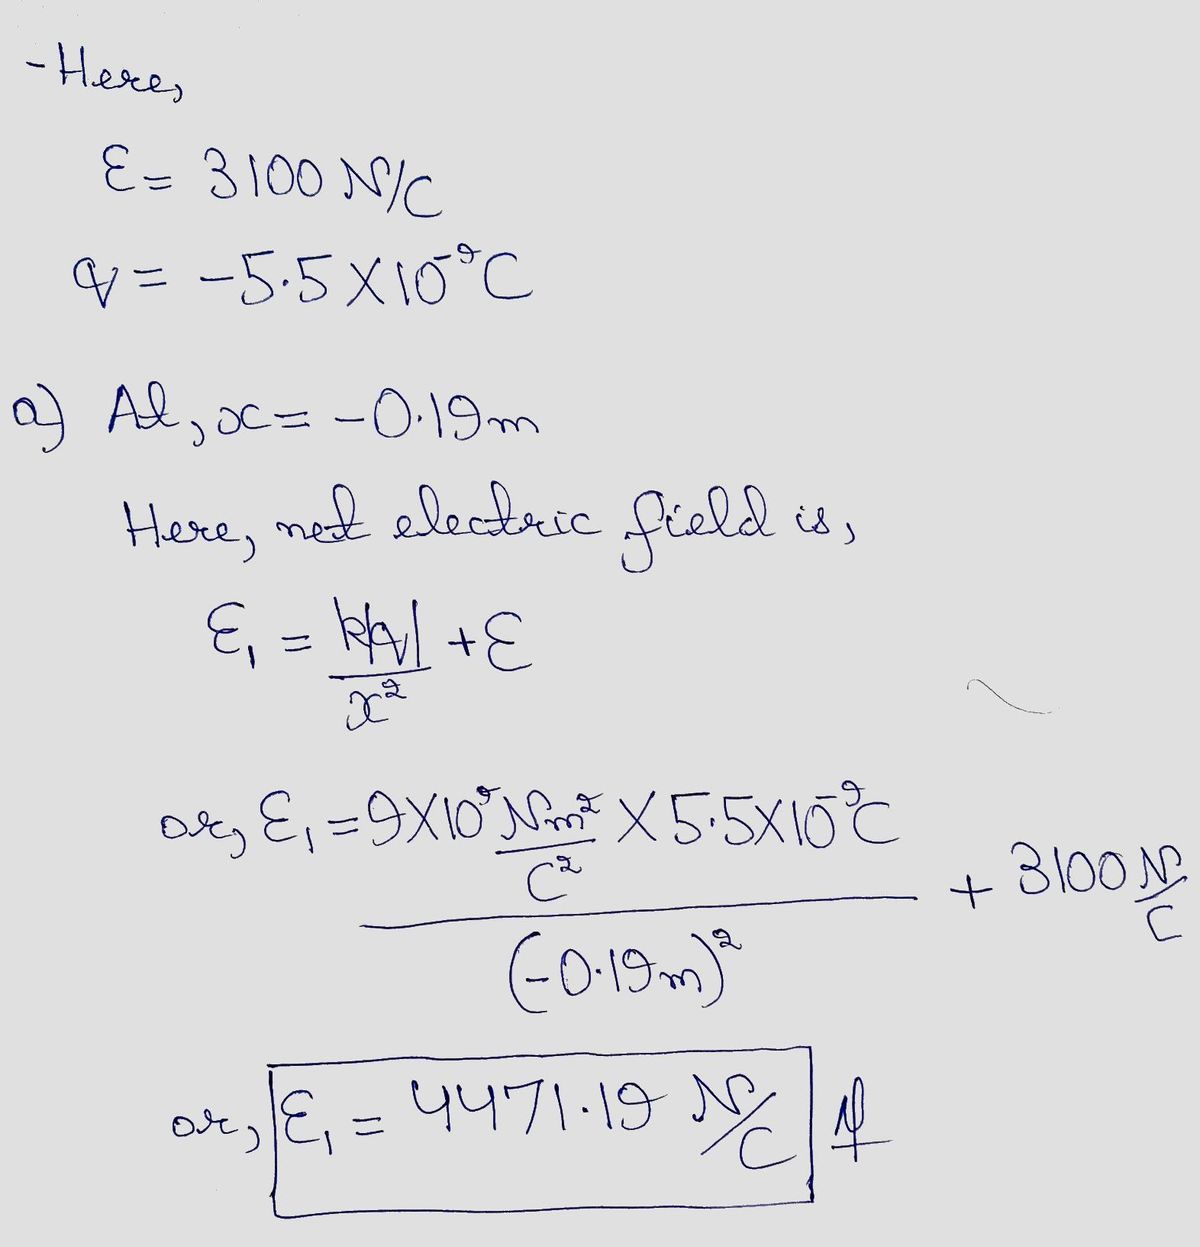 - Here,
ε = 3100 N/C
q = -5.5 × 10⁻⁹ C
a) At, x = -0.19m
Here, net electric field is,
ε₁ = k|q|/x² + ε
or, ε₁ = (9×10⁹ Nm²/C² × 5.5×10⁻⁹ C)/(-0.19m)² + 3100 N/C
or, ε₁ = 4471.19 N/C